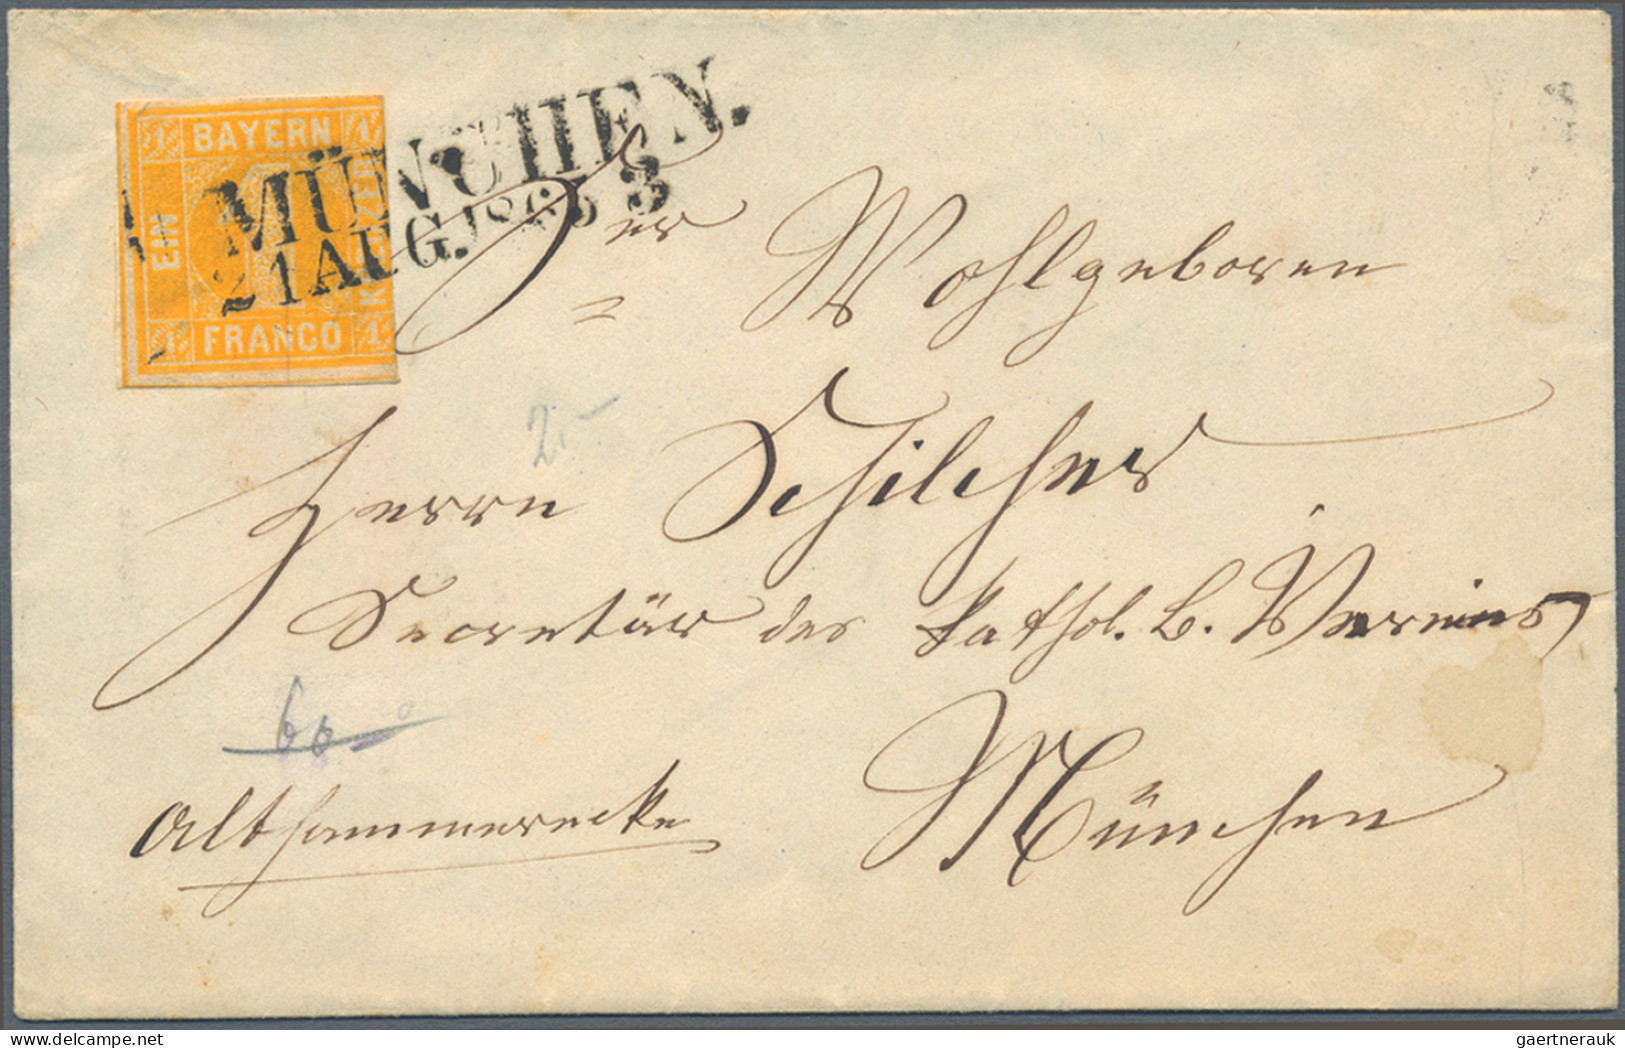 1 BAYERN 1
EIN KREUZER
1 FRANCO 1
MÜNCHEN.
21 AUG. 1865 3
Wohlgeboren
2.-
Herrn Schilcher
Secretär des kathol. B. Vereins
60
Althammerecke
München
gaertnerauk